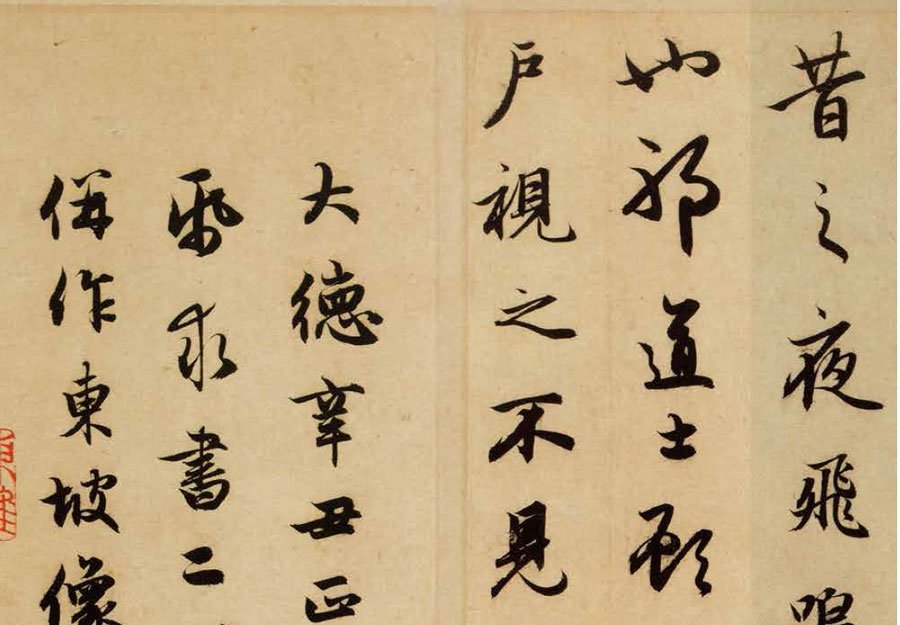 昔之夜飛鳴
也邪道士顧
戶視之不見
大德辛丑正
帋求書二
併作東坡像